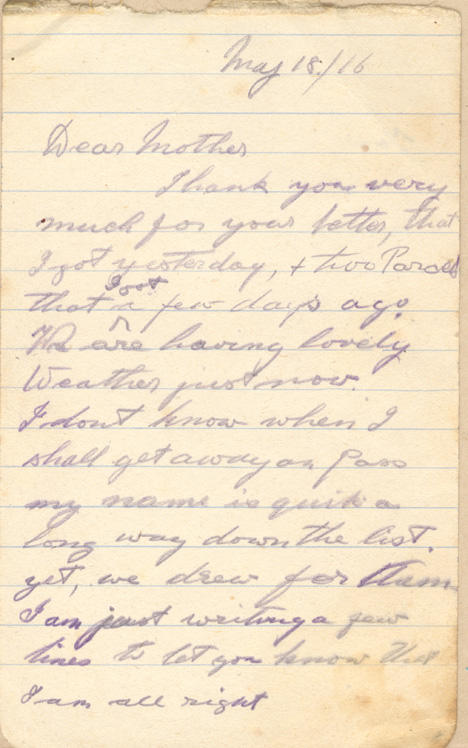 May 18./16
Dear Mother
Thank you very
much for your letter, that
I got yesterday, + two Parcels
I got
that a few days ago.
We are having lovely
Weather just now.
I dont know when I
shall get away on Pass
my name is quite a
long way down the list.
yet, we drew for them
I am just writing a few
lines to let you know that
I am all right